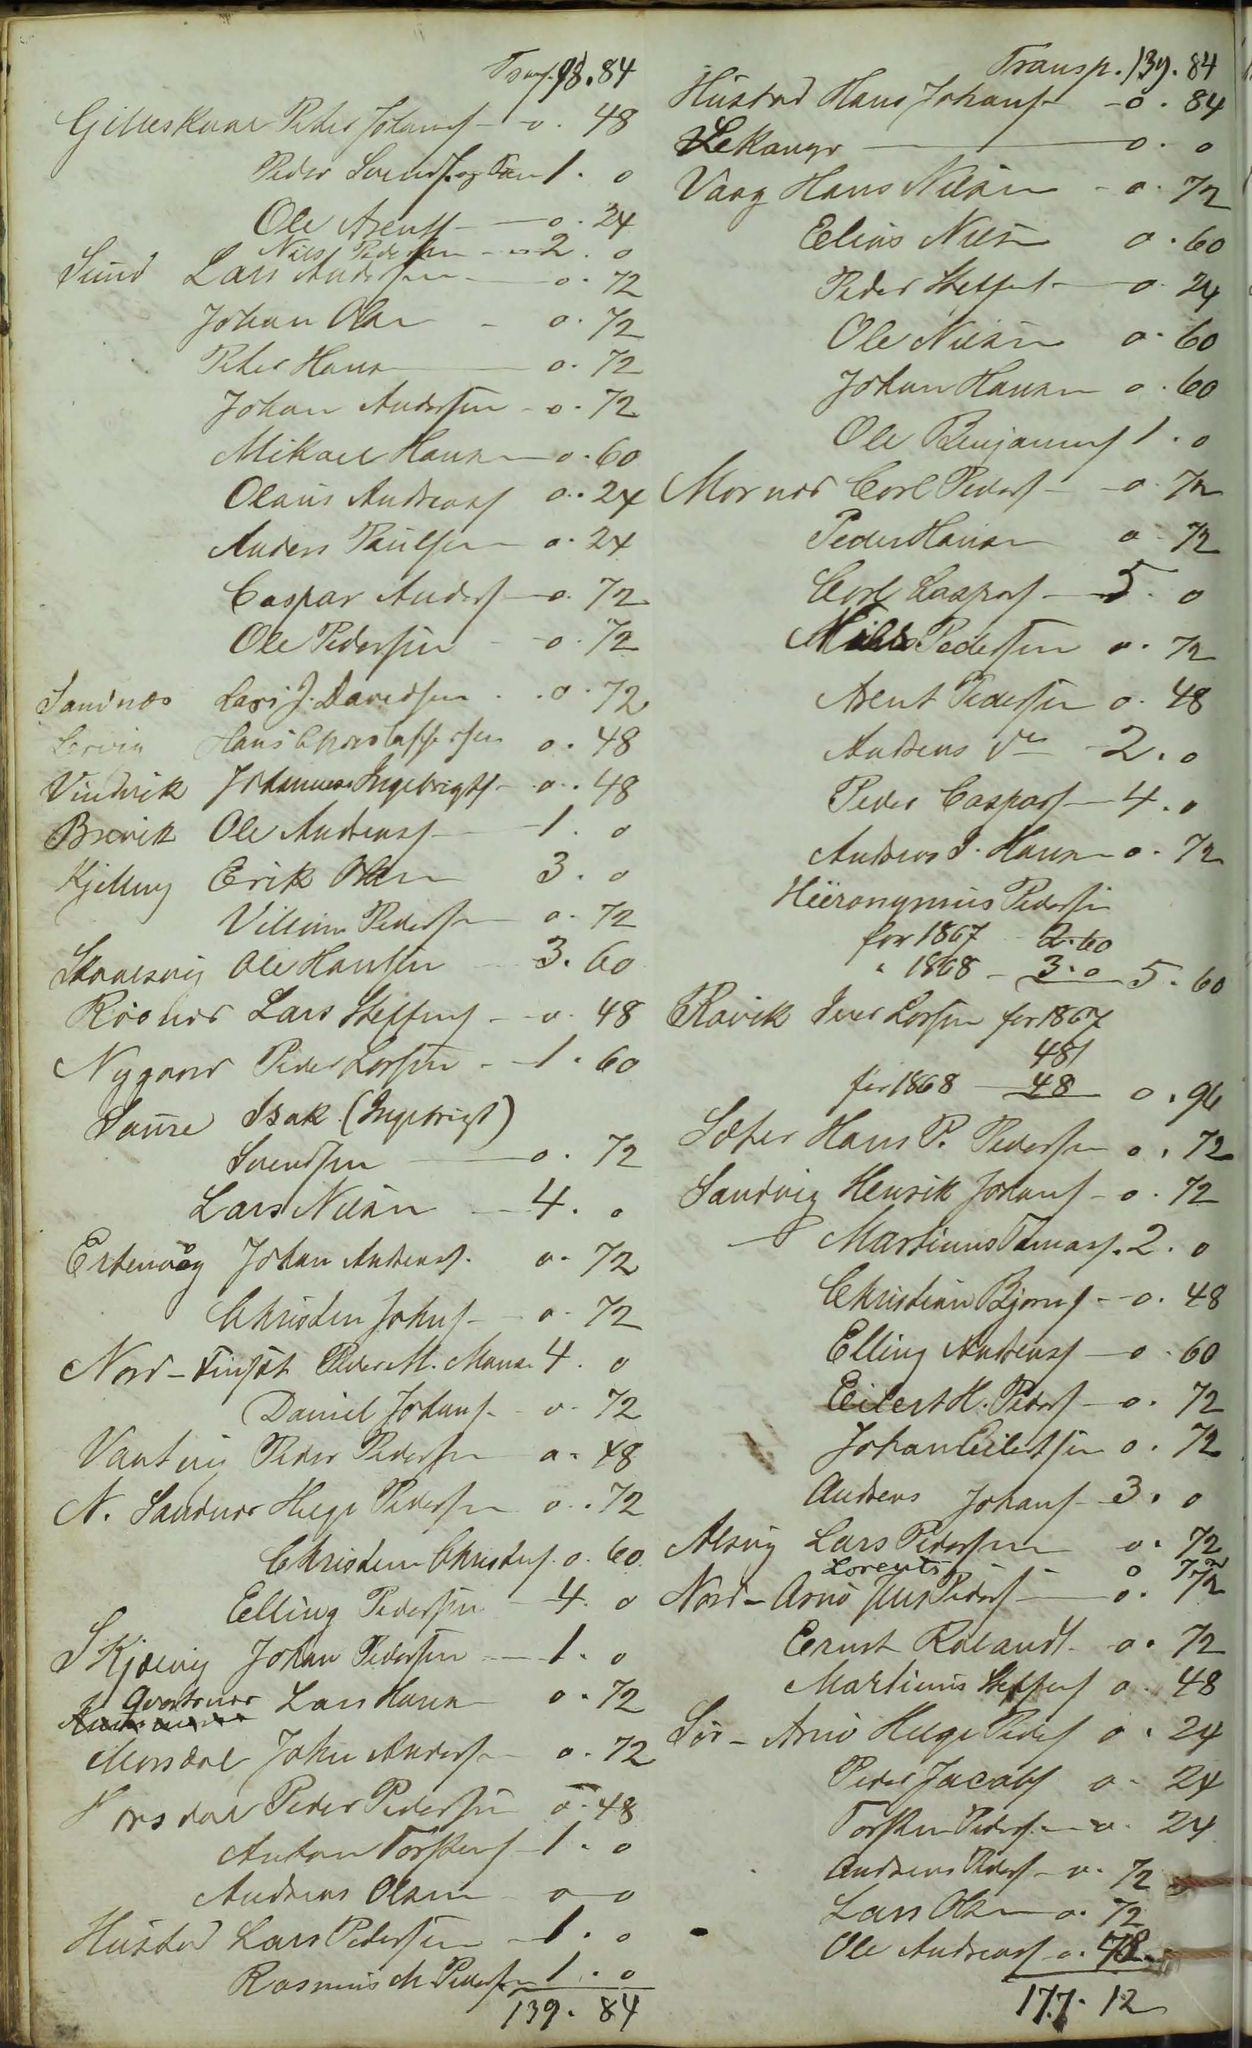 Transp. 98.84
Gilleskaal Peder Johans - o. 48
Peder Svends. og Søn 1. o
Ole Arents - o. 24
Nils Pedersen - 2. o
Sund Lars Andersen - o. 72
Johan Olsen - o. 72
Peter Hansen o. 72
Johan Andersen - o. 72
Mikael Hansen - o. 60
Olaus Andreass o. 24
Anders Paulsen o. 24
Caspar Anders - o. 72
Ole Pedersen - o. 72
Sandnæs Lars J. Davidsen . o. 72
Hans Christoffersen o. 48
Vindvik Johannes Ingebrigts - o. 48
Brevik Ole Andreass - 1. o
Kjelling Erik Olsen 3. o
Villum Pedersen o. 72
Ole Hansen - 3. 60
Røsnes Lars Steffens - o. 48
Nygaard Peder Larsen - 1. 60
Saura Isak (Ingebrigt)
Svendsen - o. 72
Lars Nilsen - 4. o
Ertenvaag Johan Andreass. o. 72
Christen Johns - o. 72
Nord-Finsæt Peder M. Mons. 4. o
Daniel Johans - o. 72
Peder Pedersen o. 48
N. Sandnes Helge Pedersen o. 72
Christen Christens. o. 60
Elling Pedersen - 4. o
Skjævig Johan Pedersen - 1. o
Lars Hansen o. 72
Morsdal John Anders - o. 72
Horsdal Peder Pedersen o. 48
Anton Torstens - 1. o
Andreas Olsen o o
Hustad Lars Pedersen - 1. o
Rasmus M. Pedersen 1. o
139. 84
Transp. 139. 84
Hustad Hans Johans - o. 84
Lekanger - o. o
Vaag Hans Nilsen - o. 72
Elias Nilsen o. 60
Peder Steffens - o. 24
Ole Nilsen o. 60
Johan Hansen o. 60
Ole Benjamins 1. o
Mornes Carl Peders - o. 72
Peder Hansen o. 72
Carl Caspars - 5. o
Nils Pedersen o. 72
Arent Pedersen o. 48
Andreas do 2. o
Peder Caspars - 4. o
Andreas J. Hansen o. 72
Hieronymus Pedersen
for 1867 2.60
" 1868 - 3.o 5. 60
Ravik Iver Larsen for 1867
48
for 1868 - 48 o. 96
Sæter Hans P. Pedersen o. 72
Sandvig Henrik Johans - o. 72
Martinus Tomass. 2. o
Christian Bjørns - o. 48
Elling Andreass - o. 60
Eilert H. Peders - o. 72
Johan Eilertsen o. 72
Andreas Johans - 3. o
Alsvig Lars Pedersen o. 72
Lorents - o 72
Nord-Arnø Jens Peders - o. 72
Ernst Rolandt - o. 72
Martinus Steffens o. 48
Sør-Arnø Helge Peders o. 24
Peder Jacobs o. 24
Torsten Peders. - o. 24
Andreas Peders - o. 72
Lars Olsen o. 72
Ole Andreass o. 48
177. 12